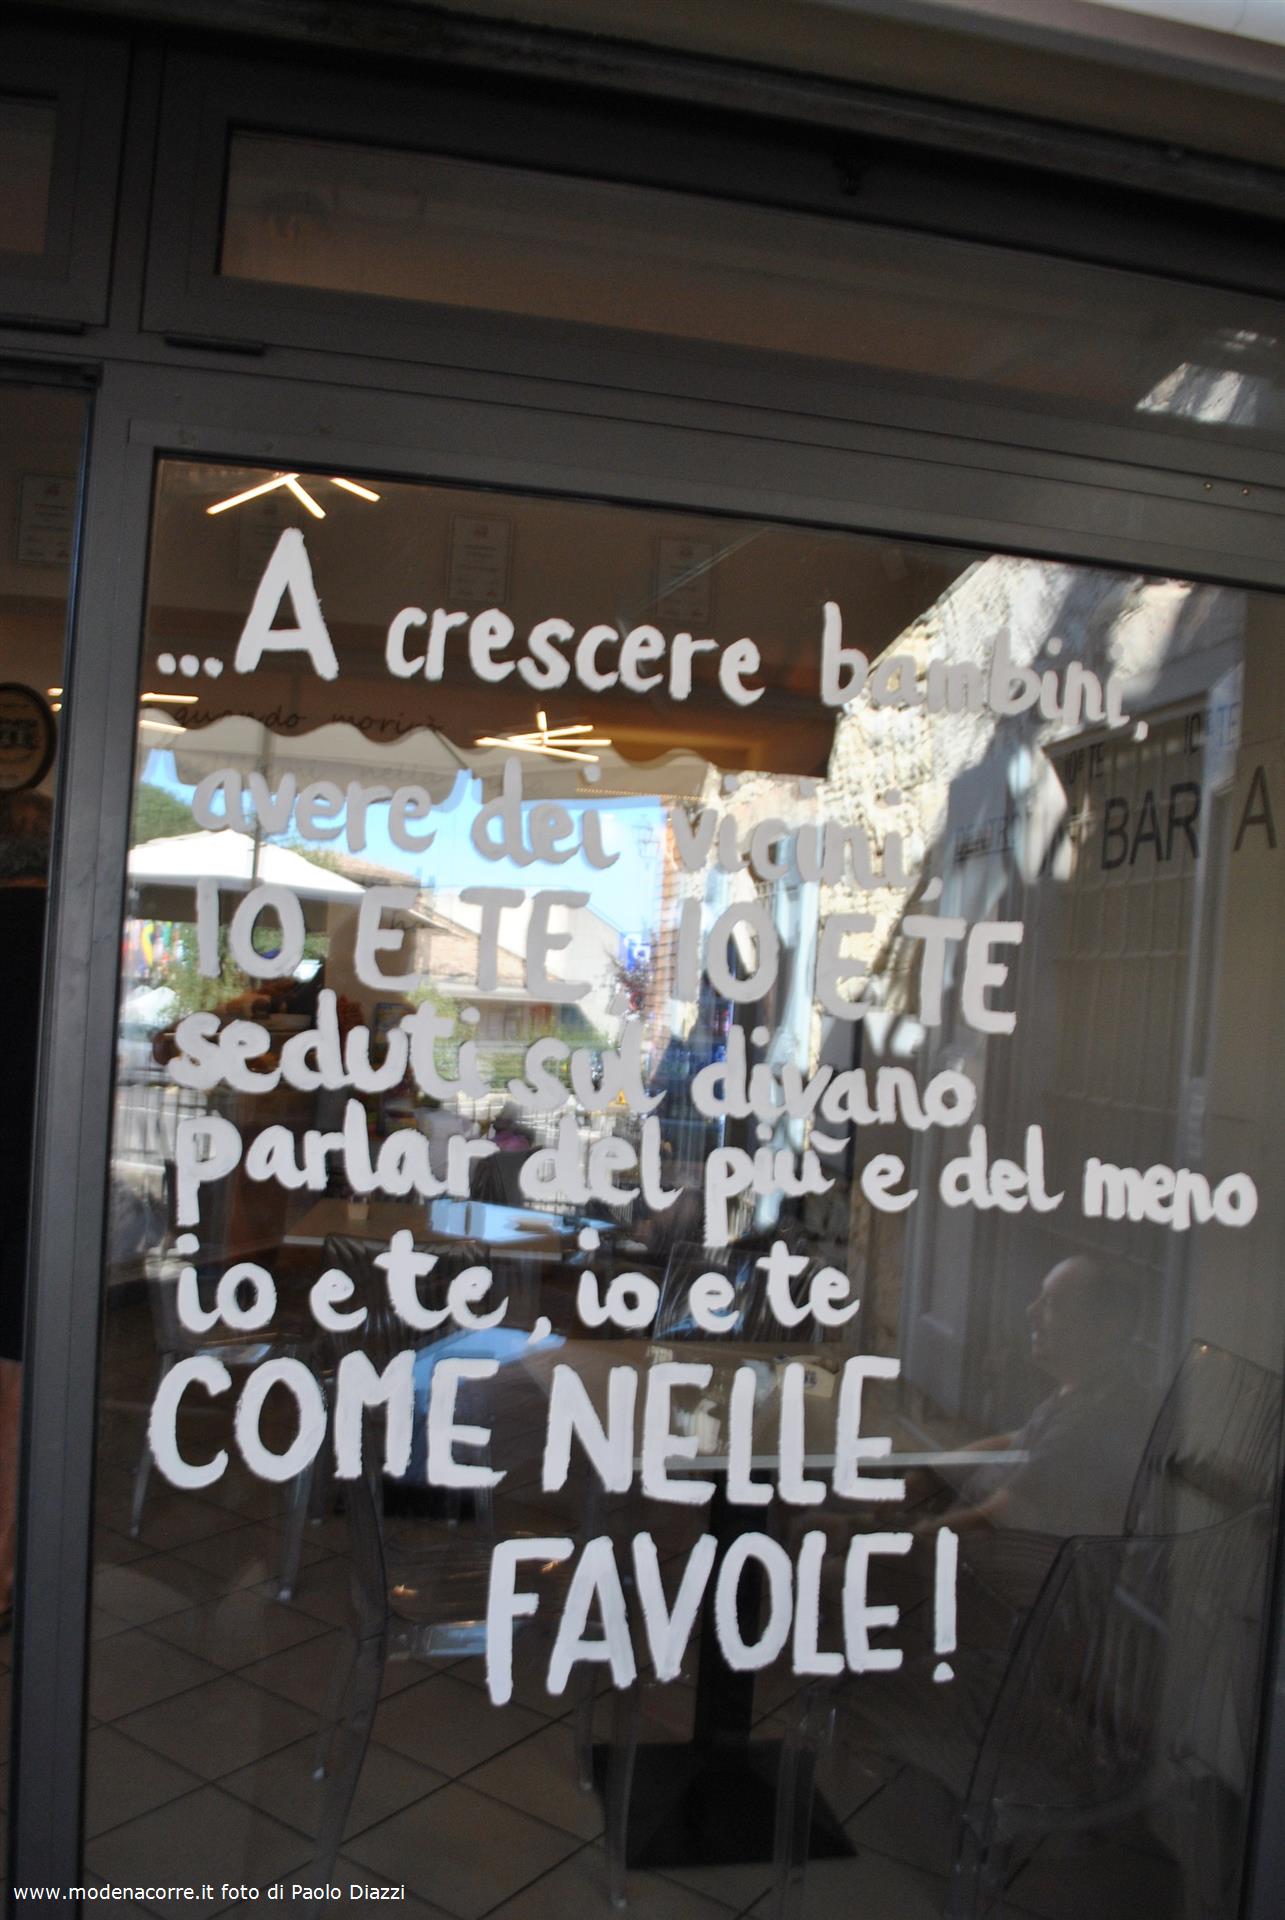 ...A crescere bambini,
quando morirò
avere dei vicini,
BAR A
IO E TE, IO E TE
seduti sul divano
parlar del più e del meno
io e te, io e te
COME NELLE
FAVOLE!
www.modenacorre.it foto di Paolo Diazzi